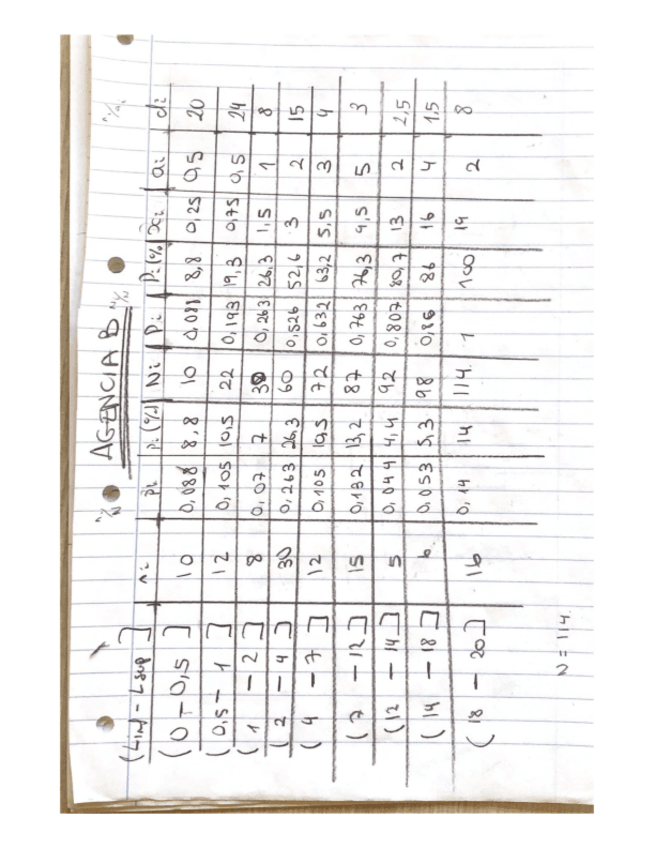 AGENCIA B
(Linf - Lsup] ni pi pi (%) Ni Pi Pi (% xi ai di
(0 - 0,5] 10 0,088 8,8 10 0,088 8,8 0,25 0,5 20
(0,5 - 1] 12 0,105 10,5 22 0,193 19,3 0,75 0,5 24
(1 - 2] 8 0,07 7 30 0,263 26,3 1,5 1 8
(2 - 4] 30 0,263 26,3 60 0,526 52,6 3 2 15
(4 - 7] 12 0,105 10,5 72 0,632 63,2 5,5 3 4
(7 - 12] 15 0,132 13,2 87 0,763 76,3 9,5 5 3
(12 - 14] 5 0,044 4,4 92 0,807 80,7 13 2 2,5
(14 - 18] 6 0,053 5,3 98 0,86 86 16 4 1,5
(18 - 20] 16 0,14 14 114 1 100 19 2 8
N = 114